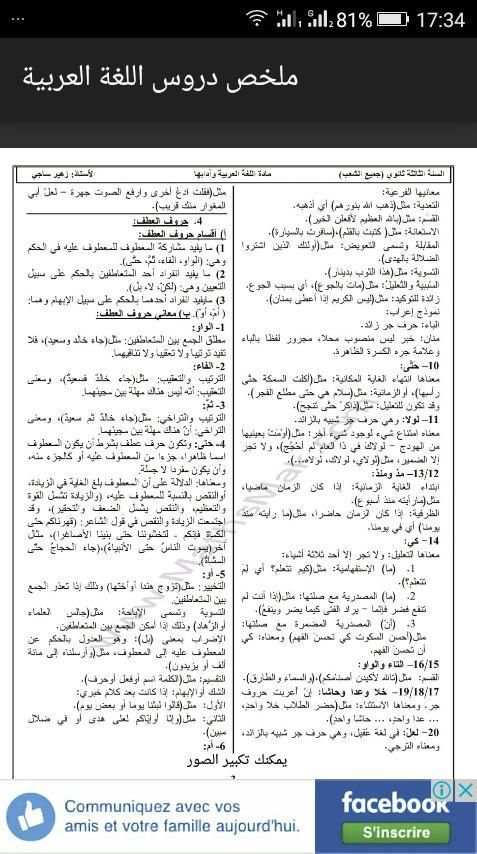 ... 1 2 81% 17:34
ملخص دروس اللغة العربية
السنة الثالثة ثانوي (جميع الشعب) مادة اللغة العربية وآدابها الأستاذ: زهير ساحي
معانيها الفرعية:
التعدية: مثل(ذهب الله بنورهم) أي أذهبه.
القسم: مثل(بالله العظيم لأفعلن الخير).
الاستعانة: مثل( كتبت بالقلم)،(سافرت بالسيارة).
المقابلة وتسمى التعويض: مثل(أولئك الذين اشتروا
الضلالة بالهدى).
التسوية: مثل(هذا الثوب بدينار).
السّببيّة والتّعليل: مثل(مات بالجوع)، أي بسبب الجوع.
زائدة للتوكيد: مثل(ليس الكريم إذا أعطى بمنان).
نموذج إعراب:
الباء: حرف جر زائد.
منان: خبر ليس منصوب محلا، مجرور لفظا بالباء
وعلامة جره الكسرة الظاهرة.
10– حتّى:
معناها انتهاء الغاية المكانية: مثل(أكلت السمكة حتّى
رأسها)، أو الزمانية: مثل(سلام هي حتى مطلع الفجر).
وقد تكون للتعليل: مثل(ذاكرْ حتى تنجح).
11– لولا: وهي حرف جر شبيه بالزائد.
معناه امتناع شيء لوجود شيء آخر: مثل(أومَتْ بعينيها
من الهودج - لولاك في ذا العام لم أحجج)، ولا تجر
إلا الضمير، مثل(لولاي، لولاك، لولاه...).
13/12– مذ ومنذ:
ابتداء الغاية الزمانية: إذا كان الزمان ماضيا،
مثل(مارأيته منذ أسبوع).
الظرفية: إذا كان الزمان حاضرا، مثل(ما رأيته منذ
يومنا) أي في يومنا.
14– كي:
معناها التعليل: ولا تجر إلا أحد ثلاثة أشياء:
1. (ما) الإستفهامية: مثل(كيم تتعلم؟ أي لم
تتعلم؟).
2. (ما) المصدرية مع صلتها: مثل(إذا أنت لم
تنفع فضر فإنما – يراد الفتى كيما يضر وينفعُ).
3. (أنْ) المصدرية المضمرة مع صلتها:
مثل(أحسن السكوت كي تحسن الفهم) ومعناه: كي
أن تحسن الفهم.
16/15– التاء والواو:
القسم: مثل(تالله لأكيدن أصنامكم)،(والسماء والطارق).
19/18/17– خلا وعدا وحاشا: إن أعربت حروف
جر. ومعناها الاستثناء: مثل(حضر الطلاب خلا واحدٍ،
... عدا واحدٍ، ... حاشا واحدٍ).
20– لعلّ: في لغة عُقيل، وهي حرف جر شبيه بالزائد،
ومعناه الترجي.
مثل(فقلت ادعُ أخرى وارفع الصوت جهرة – لعلّ أبي
المغوار منك قريب).
4. حروف العطف:
أ) أقسام حروف العطف:
1) ما يفيد مشاركة المعطوف للمعطوف عليه في الحكم
وهي: (الواو، الفاء، ثمّ، حتّى).
2) ما يفيد انفراد أحد المتعاطفين بالحكم على سبيل
التعيين وهي: (لكنْ، لا، بل).
3) مايفيد انفراد أحدهما بالحكم على سبيل الإبهام وهما:
( أم، أو). ب) معاني حروف العطف:
1– الواو:
مطلق الجمع بين المتعاطفين: مثل(جاء خالد وسعيد)، فلا
تفيد ترتيبا ولا تعقيبا ولا تنافيهما.
2– الفاء:
الترتيب والتعقيب: مثل(جاء خالدٌ فسعيدٌ)، ومعنى
التعقيب: أنه ليس هناك مهلة بين مجيئهما.
3– ثمّ:
الترتيب والتراخي: مثل(جاء خالد ثم سعيد)، ومعنى
التراخي: أنّ هناك مهلة بين مجيئهما.
4– حتى: وتكون حرف عطف بشرط أن يكون المعطوف
اسما ظاهرا، جزءا من المعطوف عليه أو كالجزء منه،
وأن يكون مفردا لا جملة.
ومعناها: الدلالة على أن المعطوف بلغ الغاية في الزيادة،
أوالنقص بالنسبة للمعطوف عليه، (والزيادة تشمل القوة
والتعظيم، والنقص يشمل الضعف والتحقير)، وقد
اجتمعت الزيادة والنقص في قول الشاعر: (قهرناكم حتى
الكماة فإنكم - لتخشوننا حتى بنينا الأصاغرا)، مثال
آخر(يموت الناسُ حتى الأنبياءُ)،(جاء الحجاجُ حتّى
المشاةُ).
5– أو:
التخيير: مثل(تزوج هندا أوأختها) وذلك إذا تعذر الجمع
بين المتعاطفين.
التسوية وتسمى الإباحة: مثل(جالس العلماء
أوالزّهاد) وذلك إذا أمكن الجمع بين المتعاطفين.
الإضراب بمعنى (بل): وهو العدول بالحكم عن
المعطوف عليه إلى المعطوف، مثل(وأرسلناه إلى مائة
ألف أو يزيدون).
التقسيم: مثل(الكلمة اسم أوفعل أوحرف).
الشك أوالإبهام: إذا كانت بعد كلام خبري:
الأول: مثل(قالوا لبثنا يوما أو بعض يوم).
الثاني: مثل(وإنّا أوإيّاكم لعلى هدى أو في ضلال
مبين).
6– أم:
يمكنك تكبير الصور
Communiquez avec vos
amis et votre famille aujourd'hui.
facebook
S'inscrire